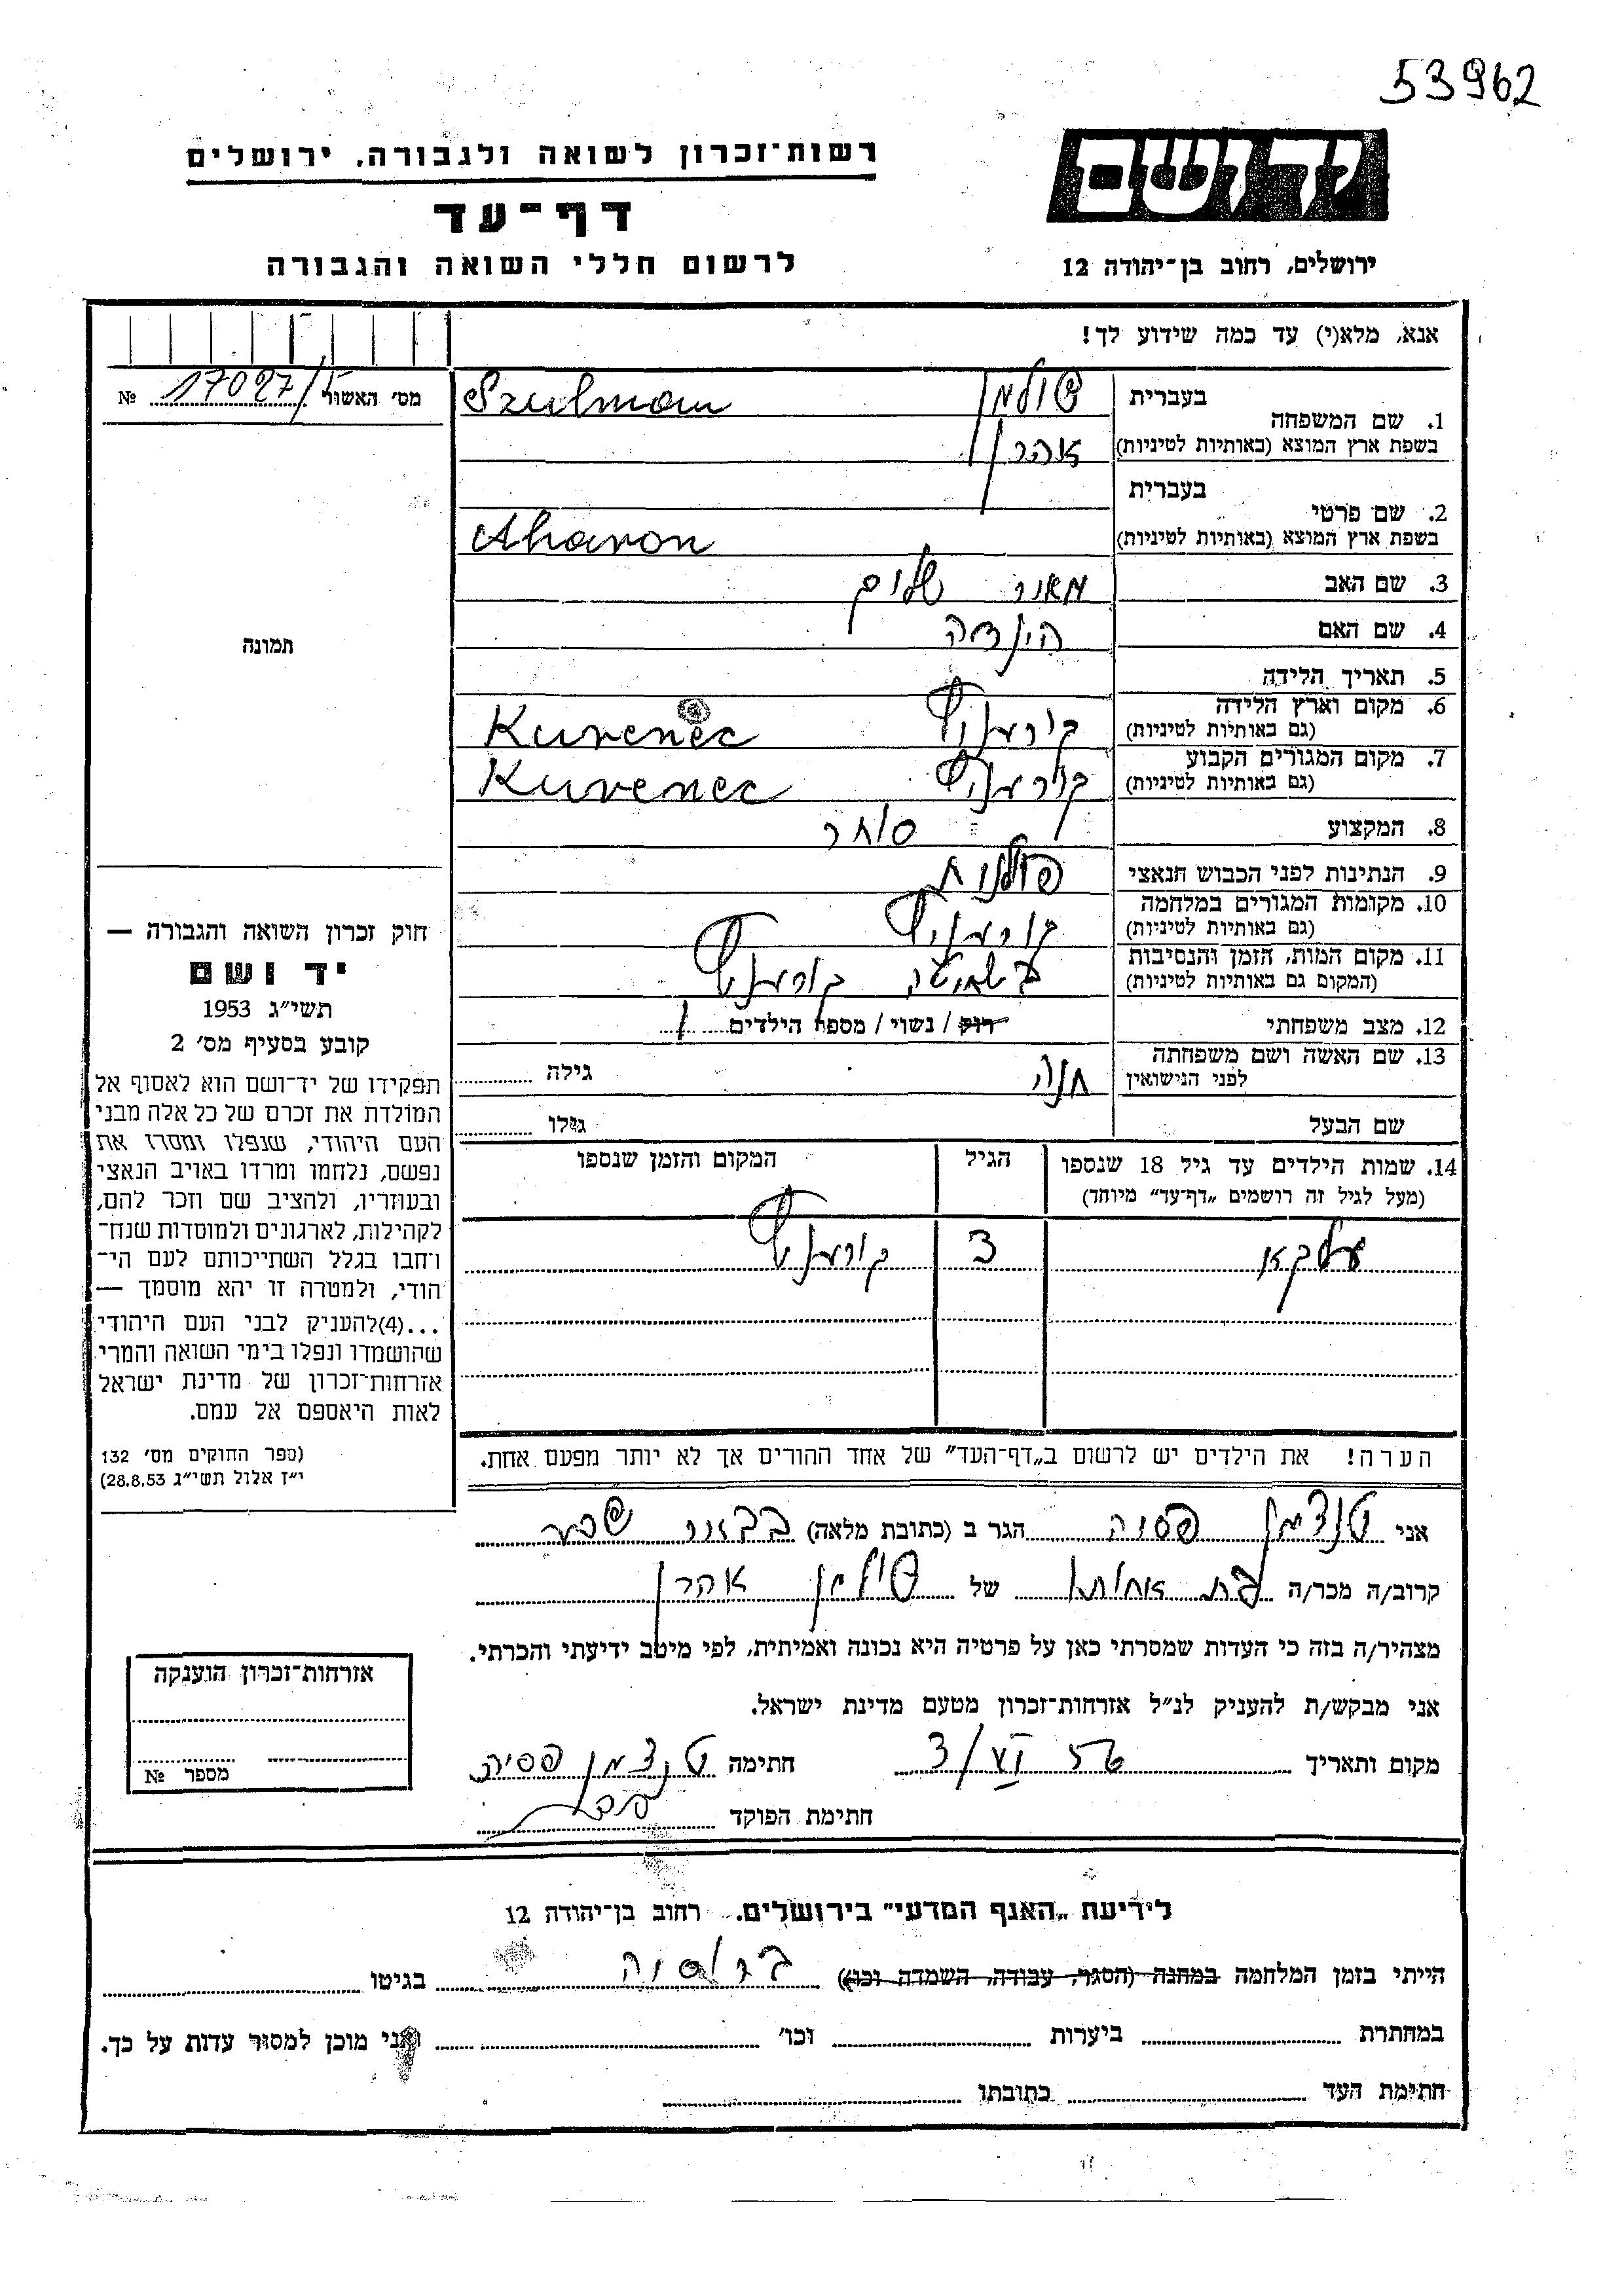 53962
יד ושם
רשות־זכרון לשואה ולגבורה, ירושלים
דף־עד
לרשום חללי השואה והגבורה
ירושלים, רחוב בן־יהודה 12
אנא, מלא(י) עד כמה שידוע לך!
מס׳ האשור 17027/ №
1. שם המשפחה בעברית שולמן Szulman
בשפת ארץ המוצא (באותיות לטיניות) אהרן
2. שם פרטי בעברית
בשפת ארץ המוצא (באותיות לטיניות) Aharon
3. שם האב מאיר שלום
4. שם האם הינדה
5. תאריך הלידה
6. מקום וארץ הלידה (גם באותיות לטיניות) קורעניץ Kurenec
7. מקום המגורים הקבוע (גם באותיות לטיניות) קורעניץ Kurenec
8. המקצוע סוחר
9. הנתינות לפני הכבוש הנאצי פולנית
10. מקומות המגורים במלחמה (גם באותיות לטיניות) קורעניץ
11. מקום המות, הזמן והנסיבות (המקום גם באותיות לטיניות) בשחיטה קורעניץ
12. מצב משפחתי רוק / נשוי / מספר הילדים 1
13. שם האשה ושם משפחתה לפני הנישואין חנה גילה
שם הבעל גילו
14. שמות הילדים עד גיל 18 שנספו הגיל המקום והזמן שנספו
(מעל לגיל זה רושמים „דף־עד״ מיוחד)
3 קורעניץ
תמונה
חוק זכרון השואה והגבורה —
יד ושם
תשי״ג 1953
קובע בסעיף מס׳ 2
תפקידו של יד־ושם הוא לאסוף אל
המולדת את זכרם של כל אלה מבני
העם היהודי, שנפלו ומסרו את
נפשם, נלחמו ומרדו באויב הנאצי
ובעוזריו, ולהציב שם וזכר להם,
לקהילות, לארגונים ולמוסדות שנח־
רבו בגלל השתייכותם לעם הי־
הודי, ולמטרה זו יהא מוסמך —
...(4)להעניק לבני העם היהודי
שהושמדו ונפלו בימי השואה והמרי
אזרחות־זכרון של מדינת ישראל
לאות היאספם אל עמם.
(ספר החוקים מס׳ 132
י״ז אלול תשי״ג 28.8.53)
הערה! את הילדים יש לרשום ב„דף־העד״ של אחד ההורים אך לא יותר מפעם אחת.
אני פסיה הגר ב (כתובת מלאה) בבאר שבע
קרוב/ה מכר/ה בת אחותו של שולמן אהרן
מצהיר/ה בזה כי העדות שמסרתי כאן על פרטיה היא נכונה ואמיתית, לפי מיטב ידיעתי והכרתי.
אני מבקש/ת להעניק לנ״ל אזרחות־זכרון מטעם מדינת ישראל.
מקום ותאריך חתימה פסיה
חתימת הפוקד
אזרחות־זכרון הוענקה
מספר №
לידיעת „האגף המדעי״ בירושלים. רחוב בן־יהודה 12
הייתי בזמן המלחמה במחנה (הסגר, עבודה, השמדה וכו׳) ברוסיה בגיטו
במחתרת ביערות וכו׳ ואני מוכן למסור עדות על כך.
חתימת העד כתובתו